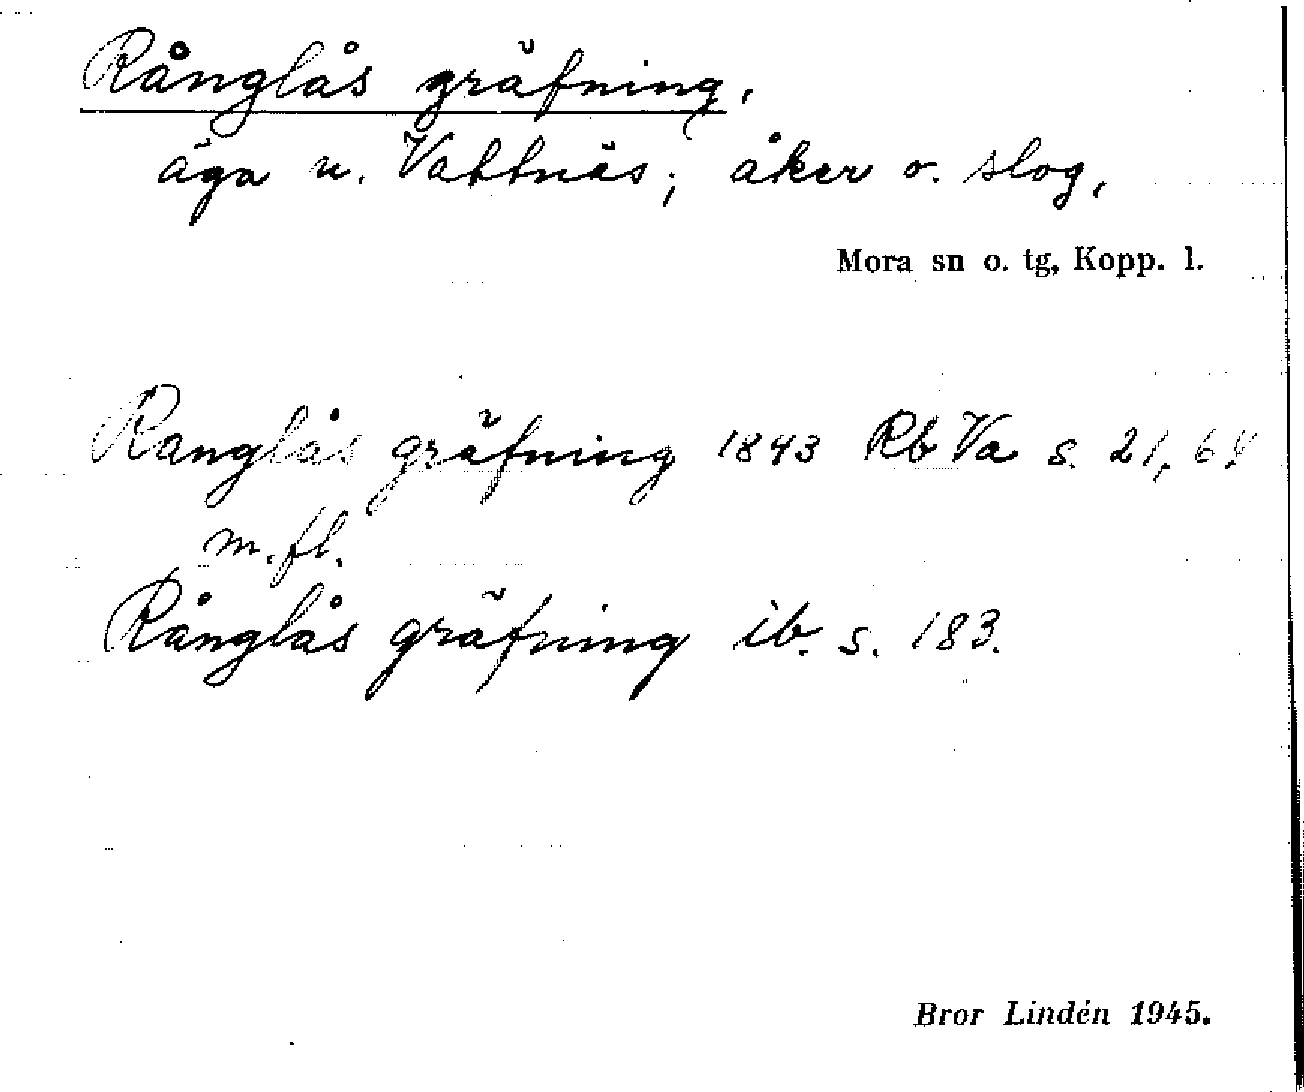 Rånglås gräfning,
äga u. Vattnäs; åker o. slog,
Mora sn o. tg, Kopp. l.
Ranglås gräfning 1843 Rb Va s. 21,
m. fl.
Rånglås gräfning ib. s. 183.
Bror Lindén 1945.